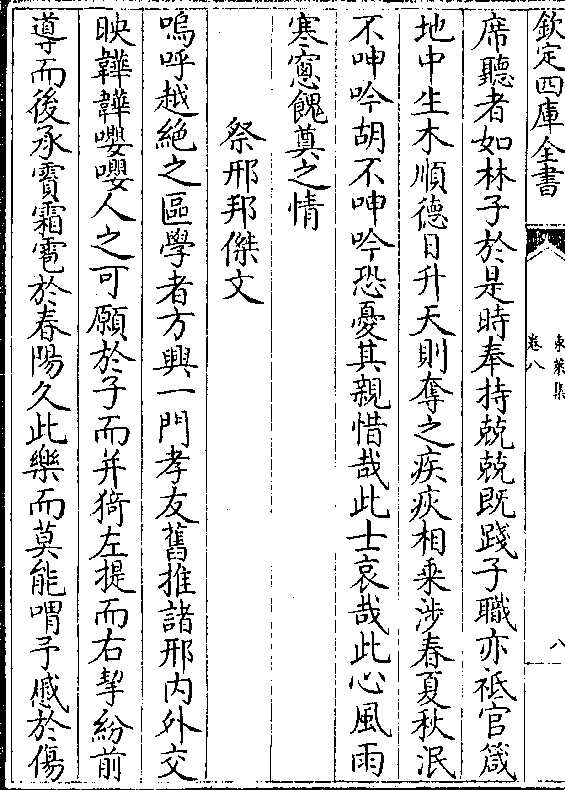 欽定四庫全書
東萊集
卷八
八
席聽者如林子於是時奉持兢兢既踐子職亦祗官箴
地中生木順德日升天則奪之疾疢相乗涉春夏秋泯
不呻吟胡不呻吟恐憂其親惜哉此士哀哉此心風雨
寒窻餽奠之情
祭邢邦傑文
嗚呼越絶之區學者方興一門孝友舊推諸邢内外交
映韡韡嚶嚶人之可願於子而并猗左提而右挈紛前
導而後承霣霜雹於春陽久此樂而莫能喟予慼於傷